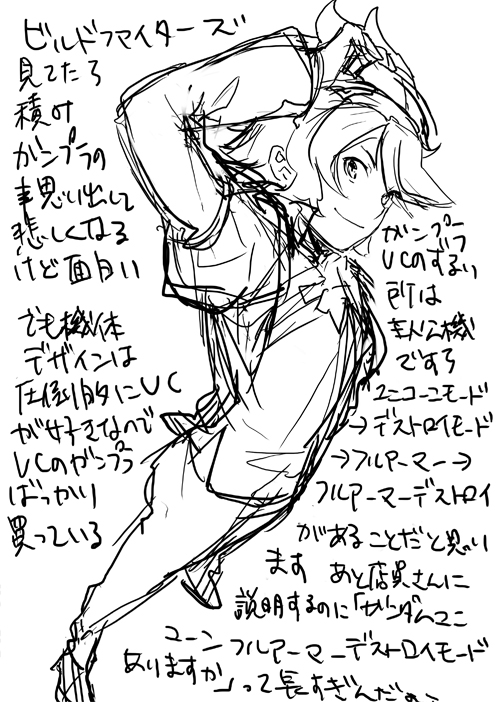 ビルドファイターズ
見てたら
積み
ガンプラの
事思い出して
悲しくなる
けど面白い
でも機体
デザインは
圧倒的にUC
が好きなので
UCのガンプラ
ばっかり
買っている
ガンプラ
UCのずるい
所は
主人公機
ですら
ユニコーンモード
→デストロイモード
→フルアーマー→
フルアーマーデストロイ
があることだと思い
ます あと店員さんに
説明するのに「ガンダムユニ
コーンフルアーマーデストロイモード
ありますか」って長すぎんだろ